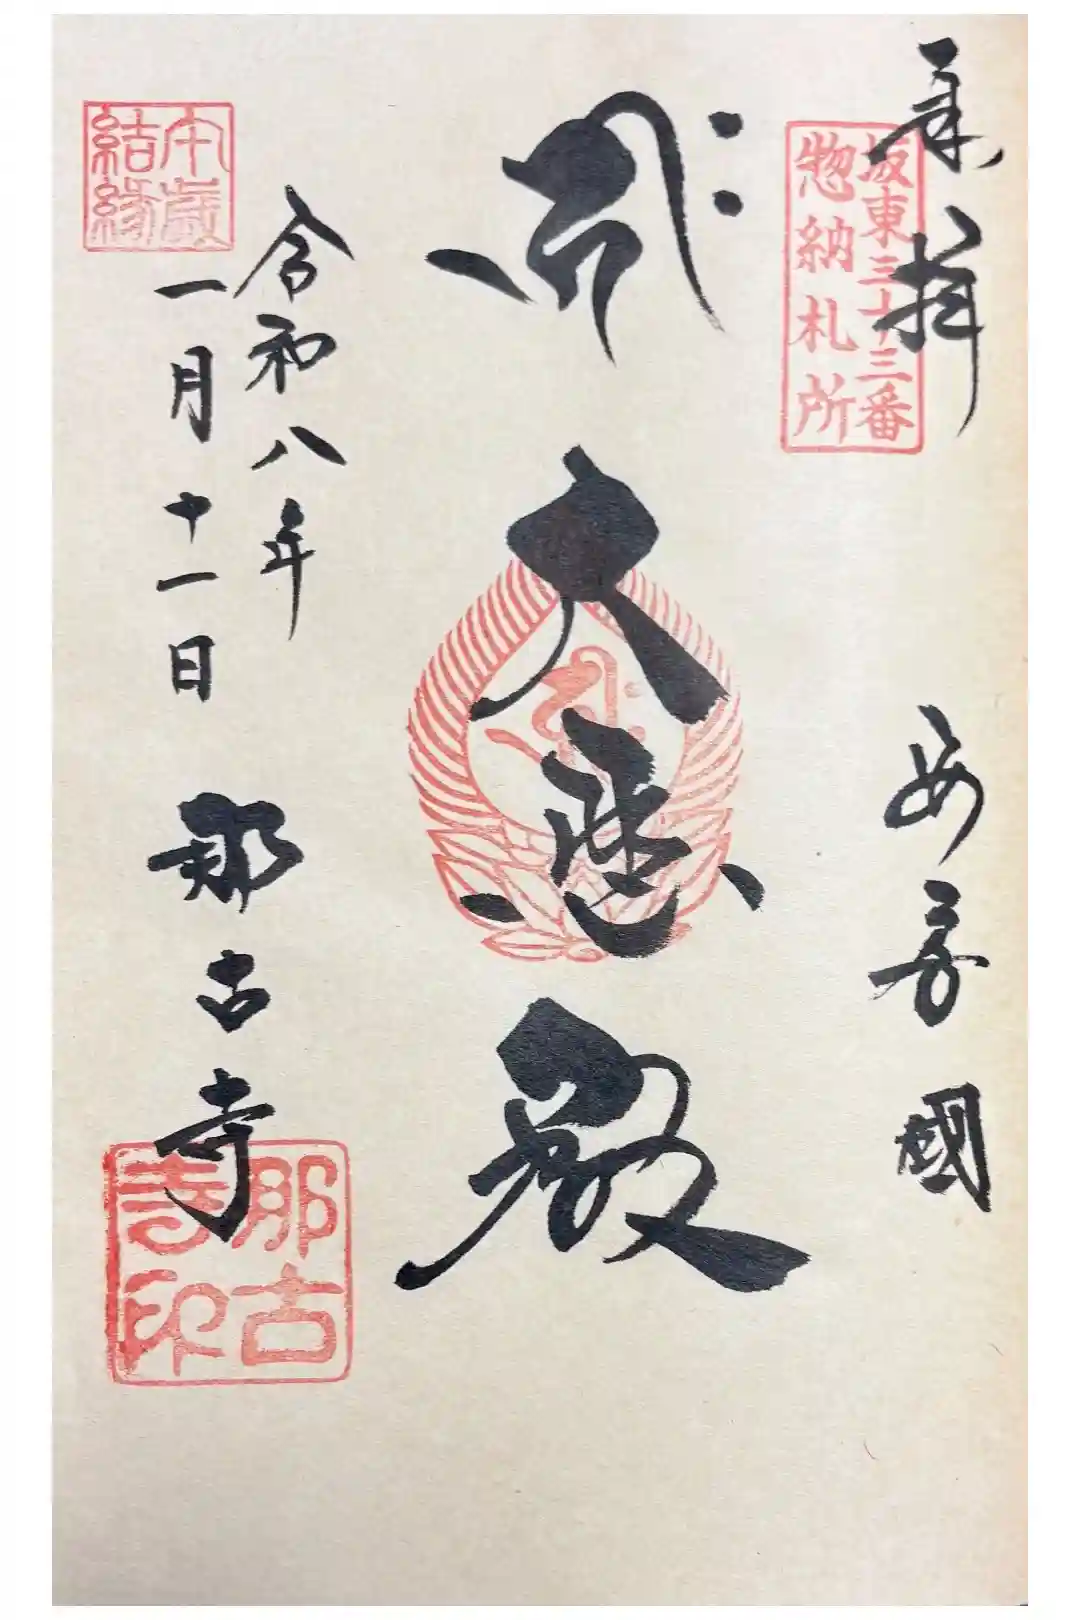 奉拝
坂東三十三番
惣納札所
安房國
大悲殿
令和八年
一月十一日
那古寺
午歳
結縁
那古
寺印